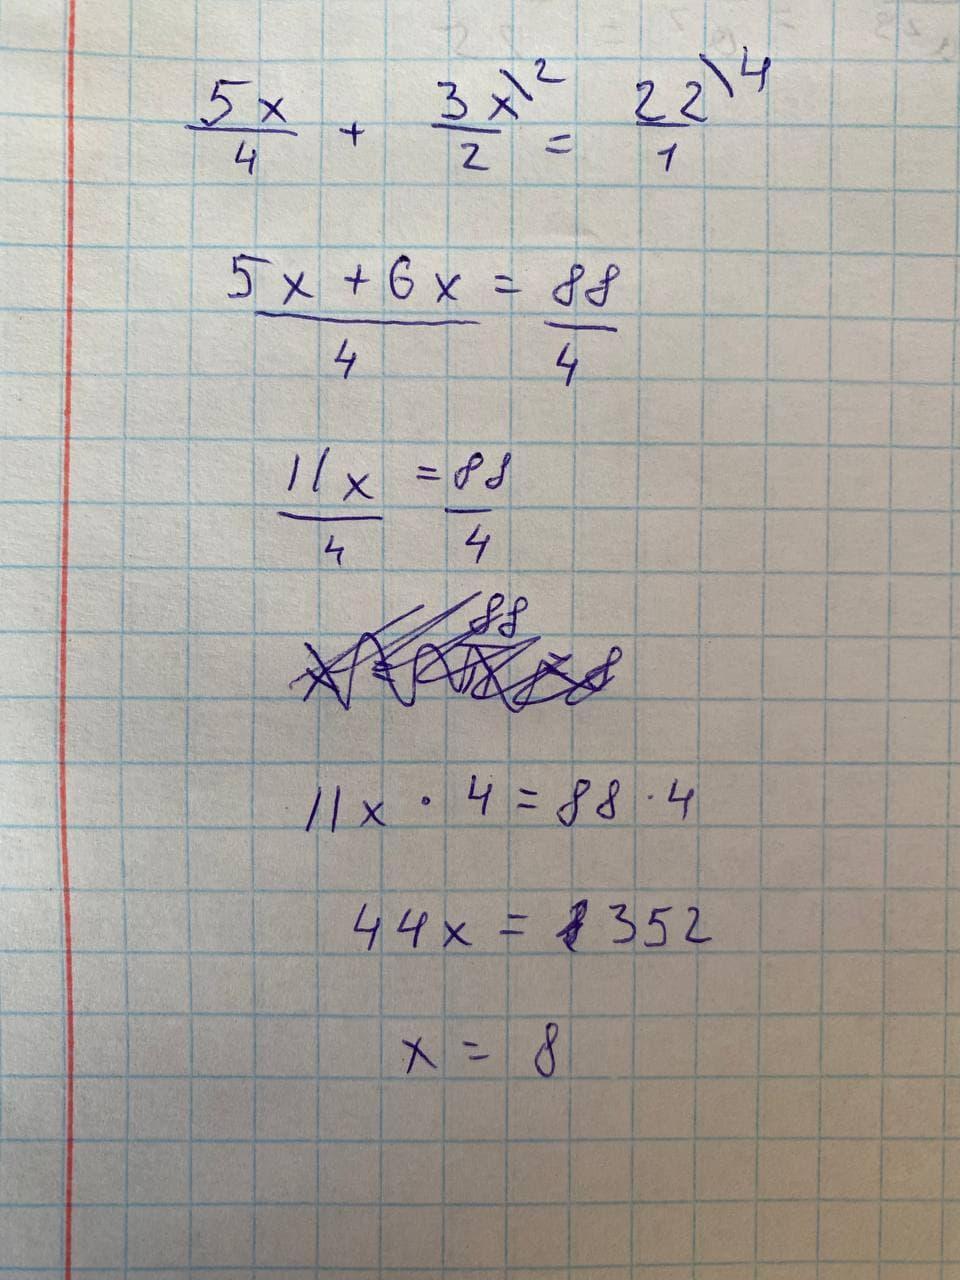 5x/4 + 3x\2/2 = 22\4/1
(5x + 6x)/4 = 88/4
11x/4 = 88/4
11x · 4 = 88 · 4
44x = 352
x = 8